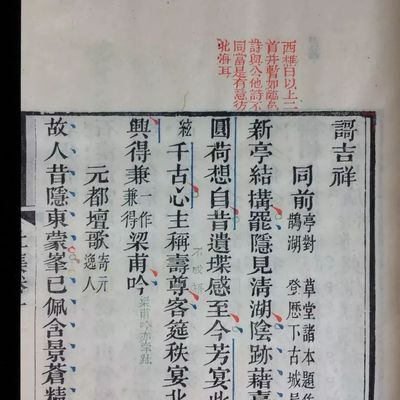 西樵曰以上二
首井暫如臨邑
詩與公他詩不
同當是有意彷
北海耳
謌吉祥
同前亭對鵲湖 草堂諸本題作登歷下古城員
新亭結搆罷隱見清湖陰跡藉臺
圓荷想自昔遺堞感至今芳宴此
絃千古心主稱壽尊客筵秩宴北
興得兼一作兼得梁甫吟
元都壇歌寄元逸人
故人昔隱東蒙峯已佩含景蒼精